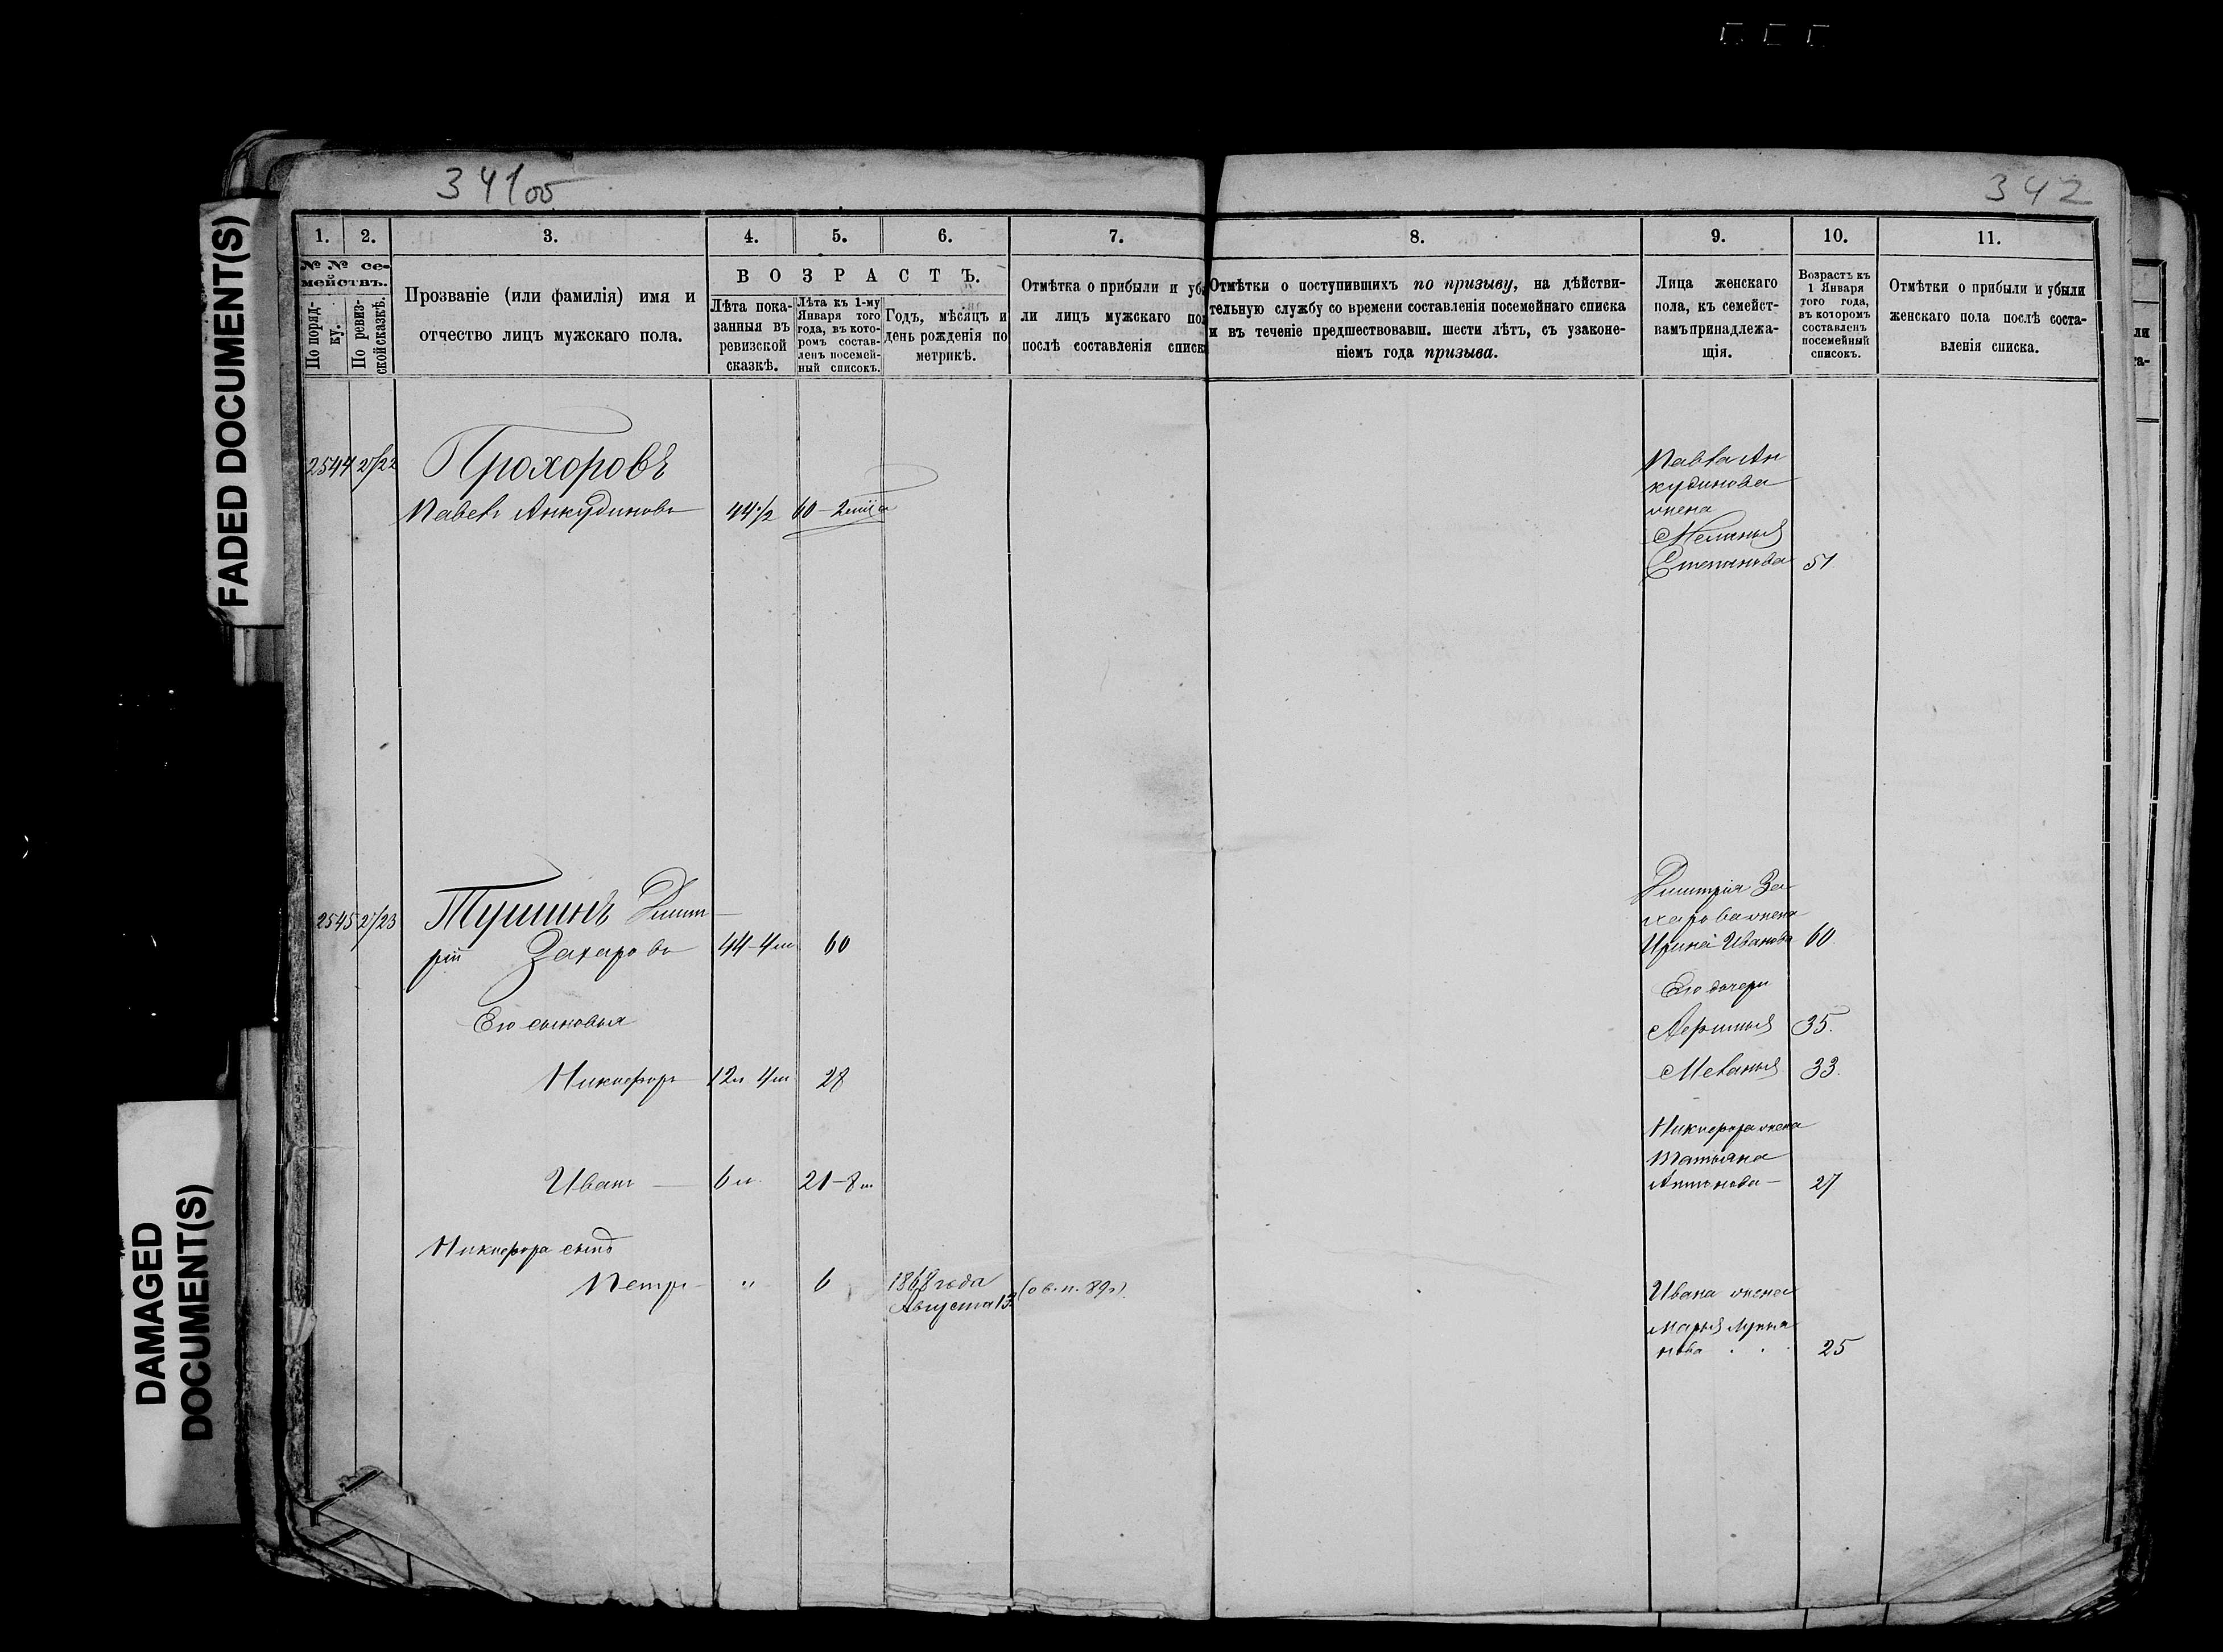 341об
342
FADED DOCUMENT(S)
DAMAGED
DOCUMENT(S)
1.
2.
3.
4.
5.
6.
7.
8.
9.
10.
11.
№ № се-
мействъ.
По поряд-
ку.
По ревиз-
ской сказкѣ.
Прозваніе (или фамилія) имя и
отчество лицъ мужскаго пола.
ВОЗРАСТЪ.
Лѣта пока-
занныя въ
ревизской
сказкѣ.
Лѣта къ 1-му
Января того
года, въ кото-
ромъ состав-
ленъ посемей-
ный списокъ.
Годъ, мѣсяцъ и
день рожденія по
метрикѣ.
Отмѣтка о прибыли и уб
ли лицъ мужскаго по
послѣ составленія списк
Отмѣтки о поступившихъ по призыву, на дѣйстви-
тельную службу со времени составленія посемейнаго списка
и въ теченіе предшествовавш. шести лѣтъ, съ узаконе-
ніемъ года призыва.
Лица женскаго
пола, къ семейст-
вамъ принадлежа-
щія.
Возрастъ къ
1 Января
того года,
въ которомъ
составленъ
посемейный
списокъ.
Отмѣтки о прибыли и убыли
женскаго пола послѣ соста-
вленія списка.
2544 Прохоровъ
Павелъ Анкудиновъ 44½ 60
Павла Ан
кудинова
жена
Степанова 51.
2545 Тушинъ Димит
рій Захаровъ 44-4м 60
Димитрія За
харова жена
Ирина Иванова 60.
Его сыновья
Его дочери
35.
Никифоръ 12л 4м 28
Меланья 33.
Никифора жена
Татьяна
Антонова 27
Иванъ 6л. 21-8м
Никифора сынъ
Петръ " 6 1868 года
Августа 13
Ивана жена
Марья Лукья
нова . . . 25